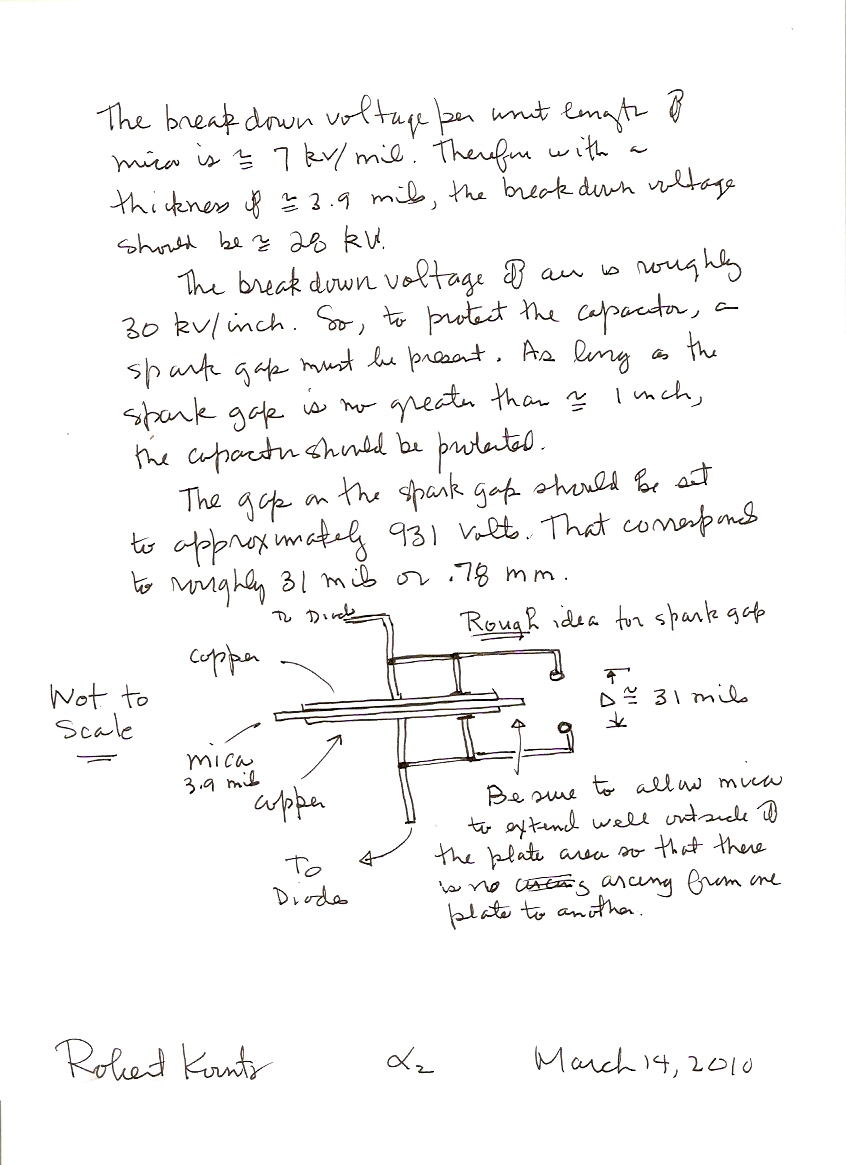 The breakdown voltage per unit length of
mica is ≅ 7 kV/mil. Therefore with a
thickness of ≅ 3.9 mils, the breakdown voltage
should be ≅ 28 kV.
The breakdown voltage of air is roughly
30 kV/inch. So, to protect the capacitor, a
spark gap must be present. As long as the
spark gap is no greater than ≅ 1 inch,
the capacitor should be protected.
The gap on the spark gap should be set
to approximately 931 Volts. That corresponds
to roughly 31 mils or .78 mm.
To Diode
Rough idea for spark gap
copper
Not to
Scale
Δ ≅ 31 mils
mica
3.9 mils
copper
Be sure to allow mica
to extend well outside of
the plate area so that there
is no arcing from one
plate to another.
To
Diodes
Robert Kountz
α2
March 14, 2010